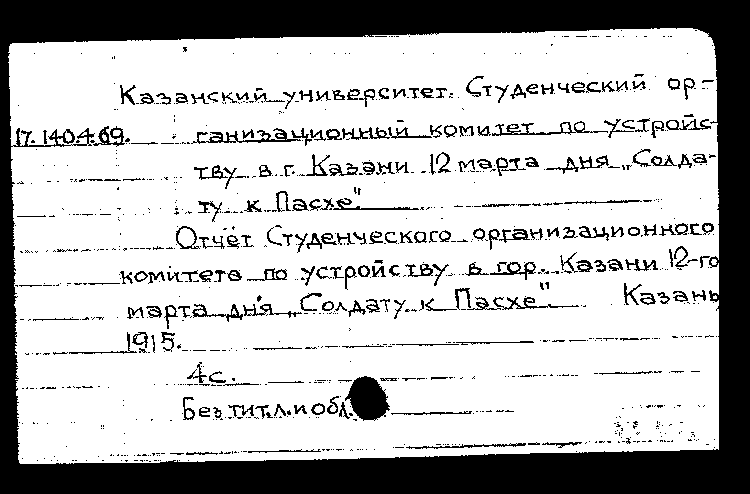 Казанский университет. Студенческий ор-
17.140.4.69. ганизационный комитет по устройс-
тву в г. Казани 12 марта дня „Солда-
ту к Пасхе".
Отчёт Студенческого организационного
комитета по устройству в гор. Казани 12-го
марта дня „Солдату к Пасхе". Казань
1915.
4с.
Без тит.л. и обл.